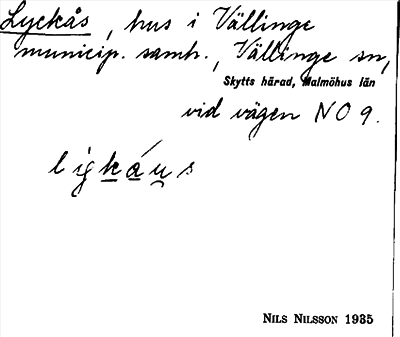 Lyckås, hus i Vällinge
municip. samh., Vällinge sn,
Skytts härad, Malmöhus län
vid vägen NO 9.
ligkáus
NILS NILSSON 1935